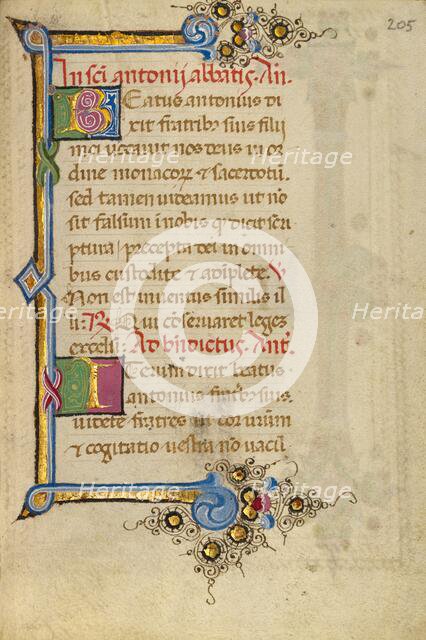 205
In sc̄i antonij abbatis. An̄.
Beatus antonius di
xit fratrib' suis filij
mei vocavit nos deus in or
dine monacorꝝ ⁊ sacerdotū
sed tamen videamus ut nō
sit falsum inobis qd̄ dicit scri
ptura precepta dei in omni
bus custodite ⁊ adiplete. ℣
Non est inventus similis il
li: ℟ Qui cōservaret legeꝫ
excelsi: Ad bn̄dictus. Ant.
Iterum dixit beatus
antonius fratrib' suis.
videte fratres ne cor vr̄um
⁊ cogitatio vestra nō vacū
Heritage
Heritage
Heritage
Heritage
Heritage
Heritage
Heritage
Heritage
C